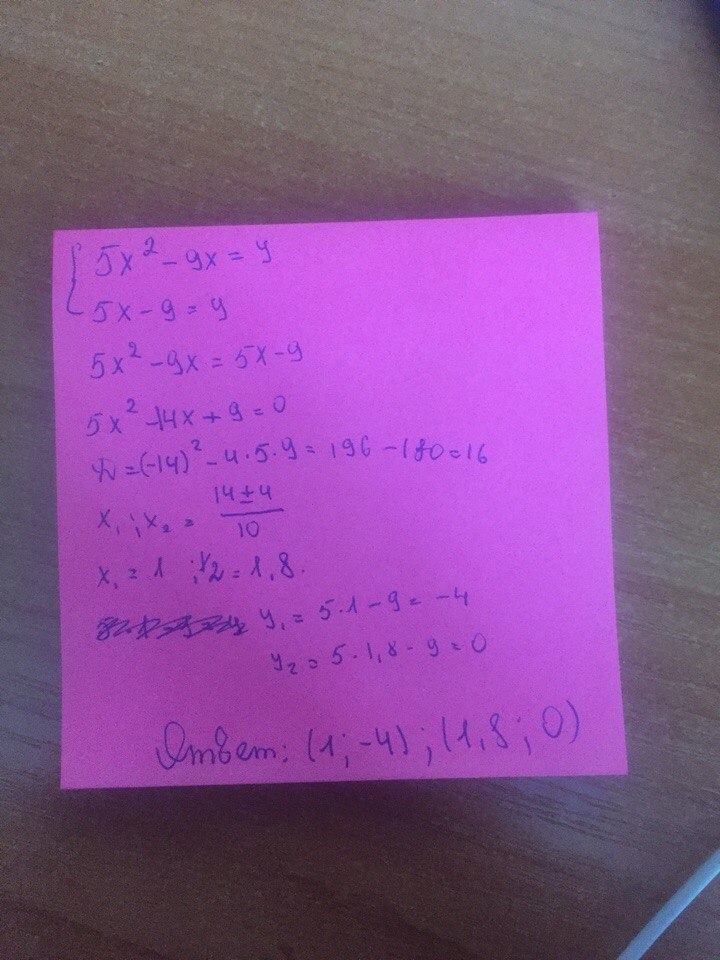 { 5x² - 9x = y
5x - 9 = y
5x² - 9x = 5x - 9
5x² - 14x + 9 = 0
D = (-14)² - 4·5·9 = 196 - 180 = 16
x₁; x₂ = (14 ± 4)/10
x₁ = 1 ; x₂ = 1,8.
y₁ = 5·1 - 9 = -4
y₂ = 5·1,8 - 9 = 0
Ответ: (1; -4); (1,8; 0)